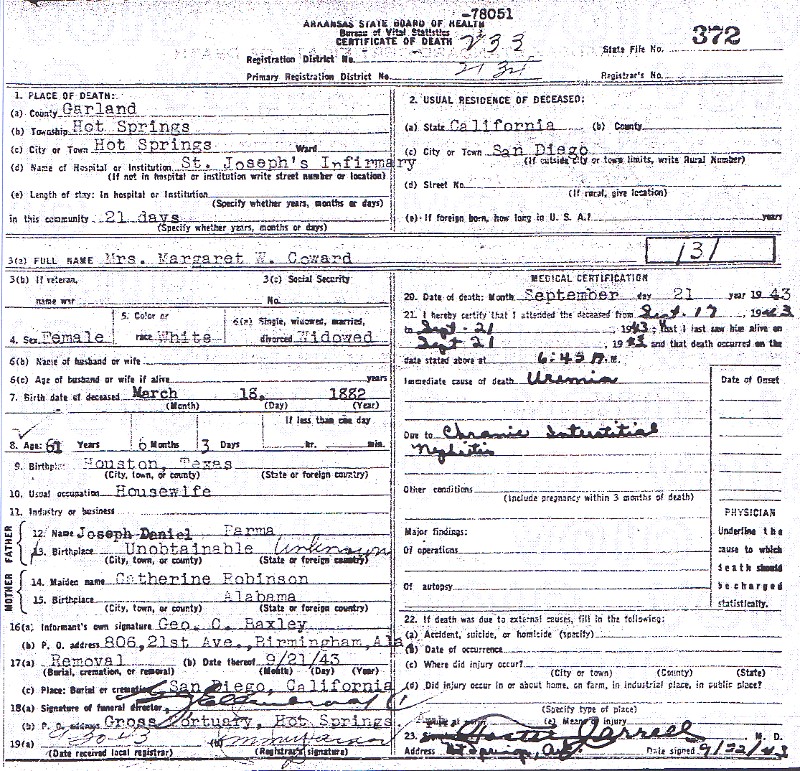 -78051
ARKANSAS STATE BOARD OF HEALTH
Bureau of Vital Statistics
CERTIFICATE OF DEATH
State File No. 372
Registration District No. 233
Primary Registration District No.
Registrar's No.
1. PLACE OF DEATH:
(a) County Garland
(b) Township Hot Springs
(c) City or Town Hot Springs Ward
(d) Name of Hospital or Institution St. Joseph's Infirmary
(If not in hospital or institution write street number or location)
(e) Length of stay: In hospital or Institution
(Specify whether years, months or days)
in this community 21 days
(Specify whether years, months or days)
2. USUAL RESIDENCE OF DECEASED:
(a) State California (b) County
(c) City or Town San Diego
(If outside city or town limits, write Rural Number)
(d) Street No.
(If rural, give location)
(e) If foreign born, how long in U. S. A.? years
3(a) FULL NAME Mrs. Margaret W. Coward
131
3(b) If veteran, name war
3(c) Social Security No.
4. Sex Female
5. Color or race White
6(a) Single, widowed, married, divorced Widowed
6(b) Name of husband or wife
6(c) Age of husband or wife if alive years
7. Birth date of deceased March 18, 1882
(Month) (Day) (Year)
If less than one day
8. Age: 61 Years 6 Months 3 Days hr. min.
9. Birthplace Houston, Texas
(City, town, or county) (State or foreign country)
10. Usual occupation Housewife
11. Industry or business
FATHER
12. Name Joseph Daniel Farma
13. Birthplace Unobtainable Unknown
(City, town, or county) (State or foreign country)
MOTHER
14. Maiden name Catherine Robinson
15. Birthplace Alabama
(City, town, or county) (State or foreign country)
16(a) Informant's own signature Geo. C. Baxley
(b) P. O. address 806, 21st Ave., Birmingham, Ala
17(a) Removal (b) Date thereof 9/21/43
(Burial, cremation, or removal) (Month) (Day) (Year)
(c) Place: Burial or cremation San Diego, California
18(a) Signature of funeral director
(b) P. O. address Gross Mortuary, Hot Springs
19(a) 9-30-43 (b)
(Date received local registrar) (Registrar's signature)
MEDICAL CERTIFICATION
20. Date of death: Month September day 21 year 1943
21. I hereby certify that I attended the deceased from Sept. 17, 1943
to Sept - 21, 1943; that I last saw him alive on
Sept 21, 1943 and that death occurred on the
date stated above at 6:45 P.m.
Immediate cause of death Uremia
Date of Onset
Due to Chronic Interstitial
Nephritis
Other conditions
(Include pregnancy within 3 months of death)
Major findings:
Of operations
Of autopsy
PHYSICIAN
Underline the
cause to which
death should
be charged
statistically.
22. If death was due to external causes, fill in the following:
(a) Accident, suicide, or homicide (specify)
(b) Date of occurrence
(c) Where did injury occur?
(City or town) (County) (State)
(d) Did injury occur in or about home, on farm, in industrial place, in public place?
(Specify type of place)
While at work (e) Means of injury
23. Jarrell M. D.
Address Hot Springs, Ark Date signed 9/22/43